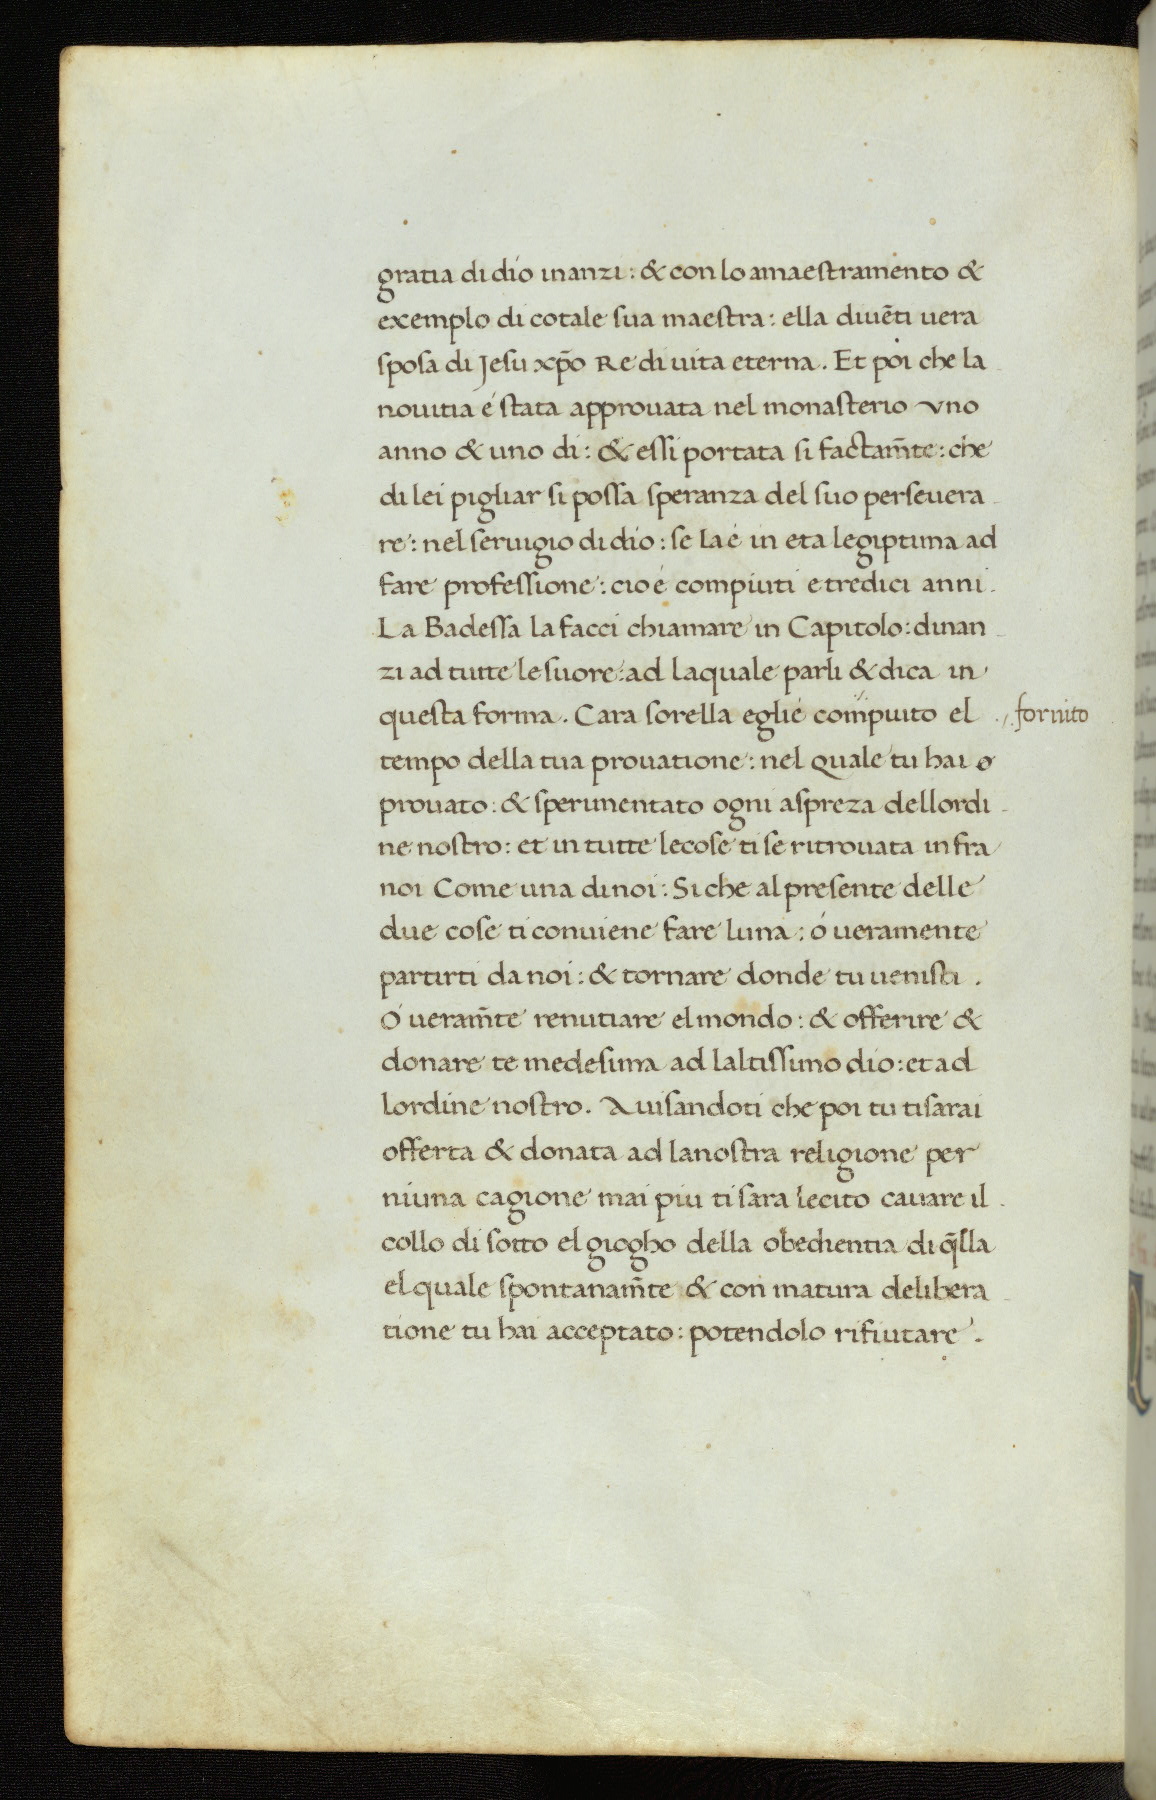 gratia di dio inanzi : & con lo amaestramento &
exemplo di cotale sua maestra : ella diuẽti uera
sposa di Jesu xp̄o Re di uita eterna . Et poi che la
nouitia é stata approuata nel monasterio vno
anno & uno di : & essi portata si factam̃te : che
di lei pigliar si possa speranza del suo perseuera
re : nel seruigio di dio : se la é in eta legiptima ad
fare professione : cio é compiuti e tredici anni .
La Badessa la facci chiamare in Capitolo : dinan
zi ad tutte le suore : ad laquale parli & dica in
questa forma . Cara sorella eglié compiuto el
fornito
tempo della tua prouatione : nel quale tu hai
prouato : & sperimentato ogni aspreza dellordi
ne nostro : et in tutte lecose ti se ritrouata infra
noi Come una di noi : Si che al presente delle
due cose ti conuiene fare luna : ó ueramente
partirti da noi : & tornare donde tu uenisti .
Ó ueram̃te renutiare el mondo : & offerire &
donare te medesima ad laltissimo dio : et ad
lordine nostro . Auisandoti che poi tu ti sarai
offerta & donata ad la nostra religione per
niuna cagione mai piu ti sara lecito cauare il
collo di sotto el giogho della obedientia di q̄lla
el quale spontanam̃te & con matura delibera
tione tu hai acceptato : potendolo rifiutare .